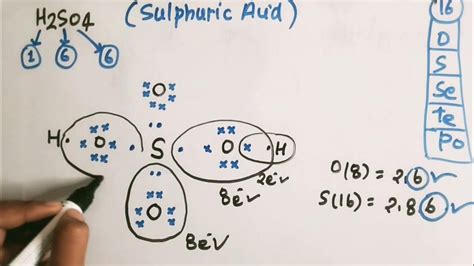 H2SO4 (Sulphuric Acid)
1 6 6
16
O
S
Se
Te
Po
O
H O S O H
2e⁻✓
8e⁻✓
O
8e⁻✓
O(8) = 2,6✓
S(16) = 2,8 6✓